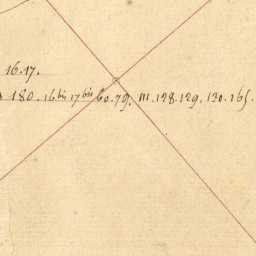 16.17.
180. 16bis 17bis 60.79. 111. 128.129. 130.165.